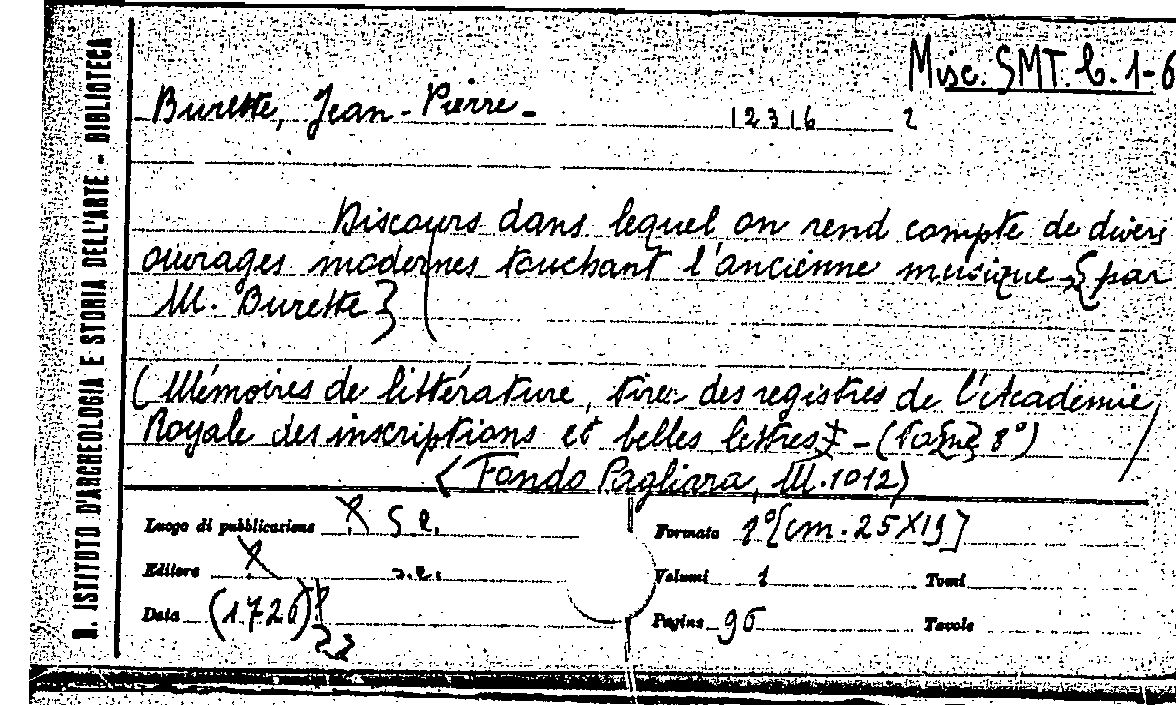 R. ISTITUTO D'ARCHEOLOGIA E STORIA DELL'ARTE - BIBLIOTECA
Misc. SMT. b. 1-6
Burette, Jean-Pierre- 12316 2
Discours dans lequel on rend compte de divers
ouvrages modernes touchant l'ancienne musique, [par
M. Burette]
(Mémoires de littérature, tirez des registres de l'Académie
Royale des inscriptions et belles lettres - (Tome 8°)
(Fondo Pagliara, M. 1012)
Luogo di pubblicazione S. l. Formato [cm. 25X19]
Editore s.e. Volumi 1 Tomi
Data (1726) Pagine 96 Tavole